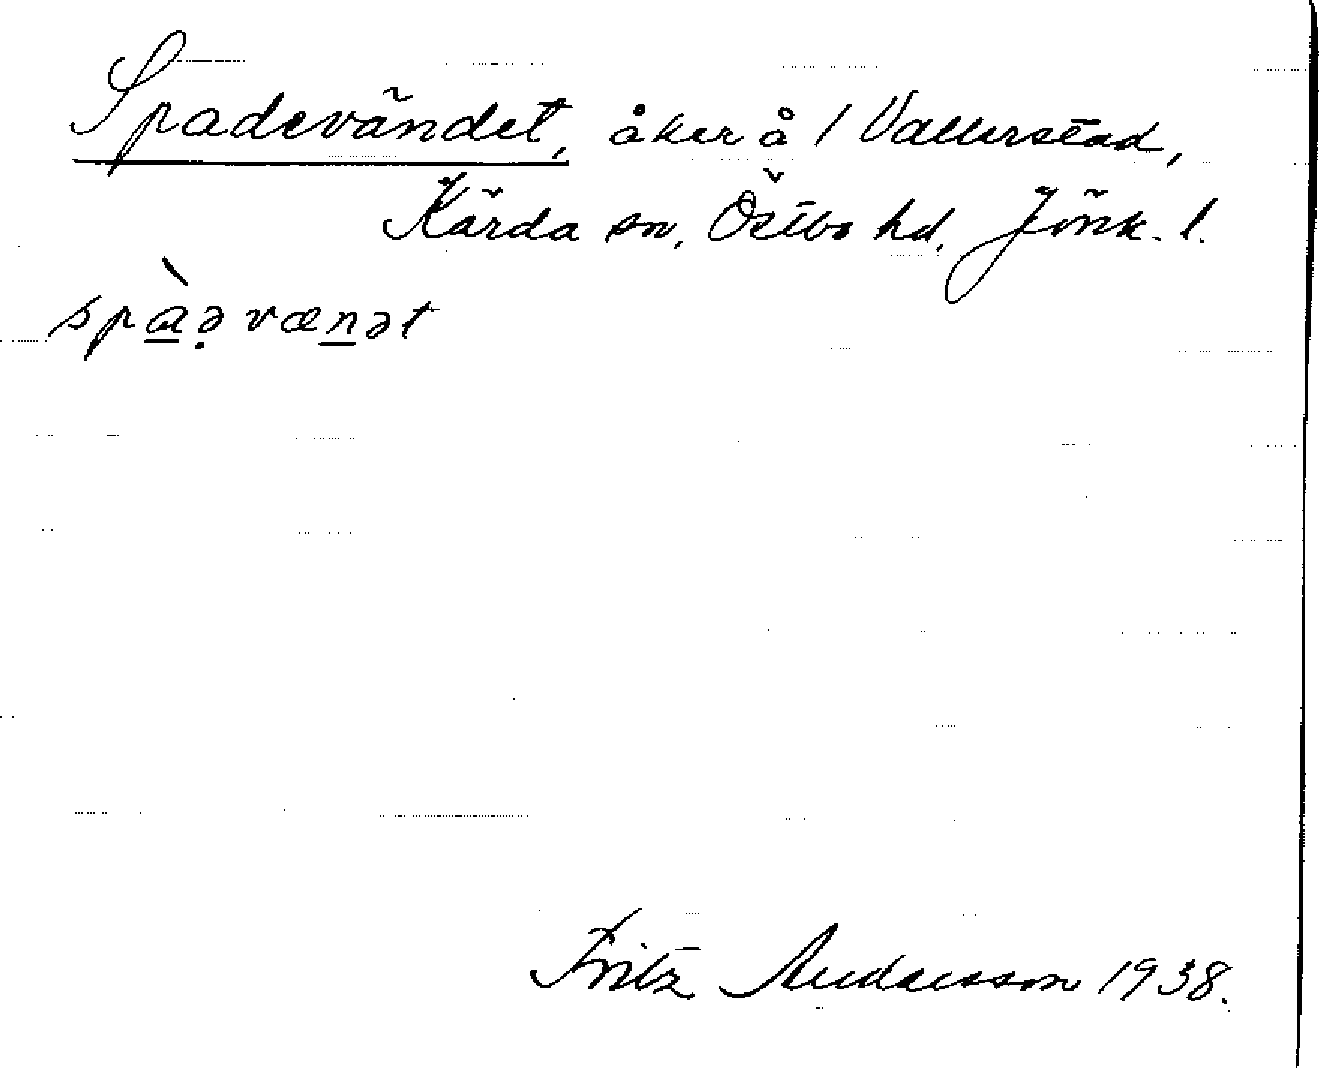 Spadevändet, åker å 1 Vallerstad,
Kärda sn, Östbo hd, Jönk. l.
spà̲ə̣væn̲ət
Fritz Andersson 1938.